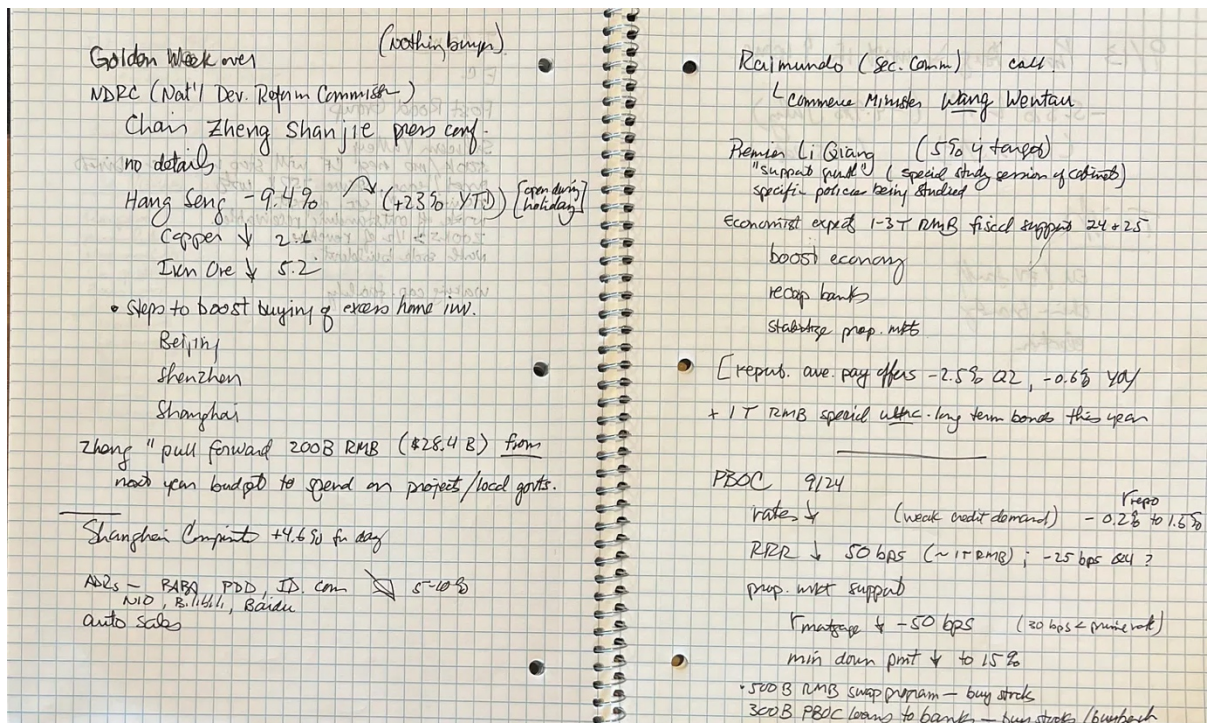 Golden Week over (nothing burger)
NDRC (Nat'l Dev. Reform Commission)
Chair Zheng Shanjie press conf.
no details
Hang Seng -9.4% (+23% YTD) [open during holiday]
Copper ↓ 2.1
Iron Ore ↓ 5.2
• steps to boost buying of excess home inv.
Beijing
Shenzhen
Shanghai
Zheng "pull forward 200B RMB ($28.4 B) from
next year budget to spend on project/local govts.
Shanghai Composite +4.6% for day
ADRs — BABA, PDD, JD.com ↘ 5-10%
NIO, Bilibili, Baidu
auto sales
Raimundo (Sec. Comm) call
└ Commerce Minister Wang Wentau
Premier Li Qiang (5% y target)
"support growth" (special study session of cabinet)
specific policies being studied
Economist expect 1-3T RMB fiscal support 24 + 25
boost economy
recap banks
stabilize prop. mkts
[recruit. ave. pay offers -2.5% Q2, -0.6% YOY
+ 1T RMB special ultra-long term bonds this year
PBOC 9/24
rates ↓ (weak credit demand) r repo - 0.2% to 1.5%
RRR ↓ 50 bps (~1T RMB); -25 bps ?
prop. mkt support
r mortgage ↓ -50 bps (30 bps < prime rate)
min down pmt ↓ to 15%
• 500B RMB swap program — buy stocks
300B PBOC loans to banks — buy stocks/buyback